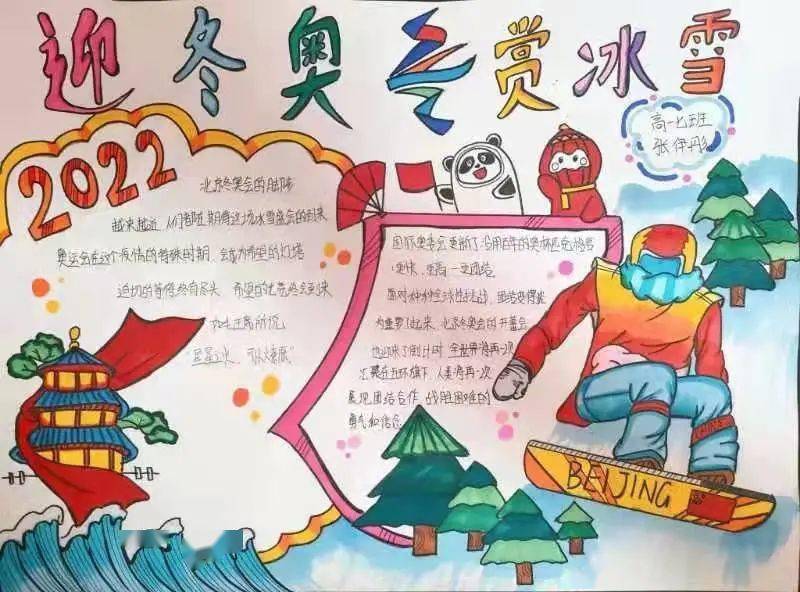 迎冬奥冬赏冰雪
高一七班
张伊彤
2022
北京冬奥会的脚步
越来越近，人们都随期着这场冰雪盛会的到来
奥运会在这个疫情的特殊时期，会成为希望的灯塔
迫切的等待终有尽头，希望的优秀终会到来
如七正篇所说
“星星之火，可以燎原”
国际奥委会更新了沿用百年的奥林匹克格言
更快，更高一更团结
面对种种全球性挑战，团结变得愈
为重要了起来，北京冬奥会的开幕会
也迎来了倒计时，全世界将再一次
汇聚在五环旗下，人类将再一次
展现团结合作，战胜困难的
勇气和信念
CHINA
BEIJING